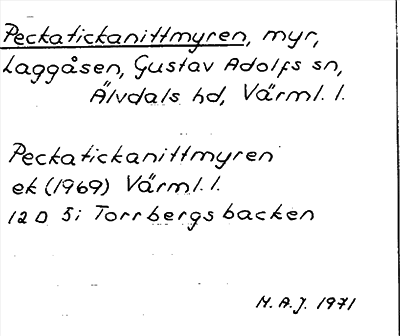 Peckatickanittmyren, myr,
Laggåsen, Gustav Adolfs sn,
Älvdals hd, Värml. l.
Peckatickanittmyren
ek (1969) Värml. l.
12 D 5i Torrbergsbacken
M.A.J. 1971